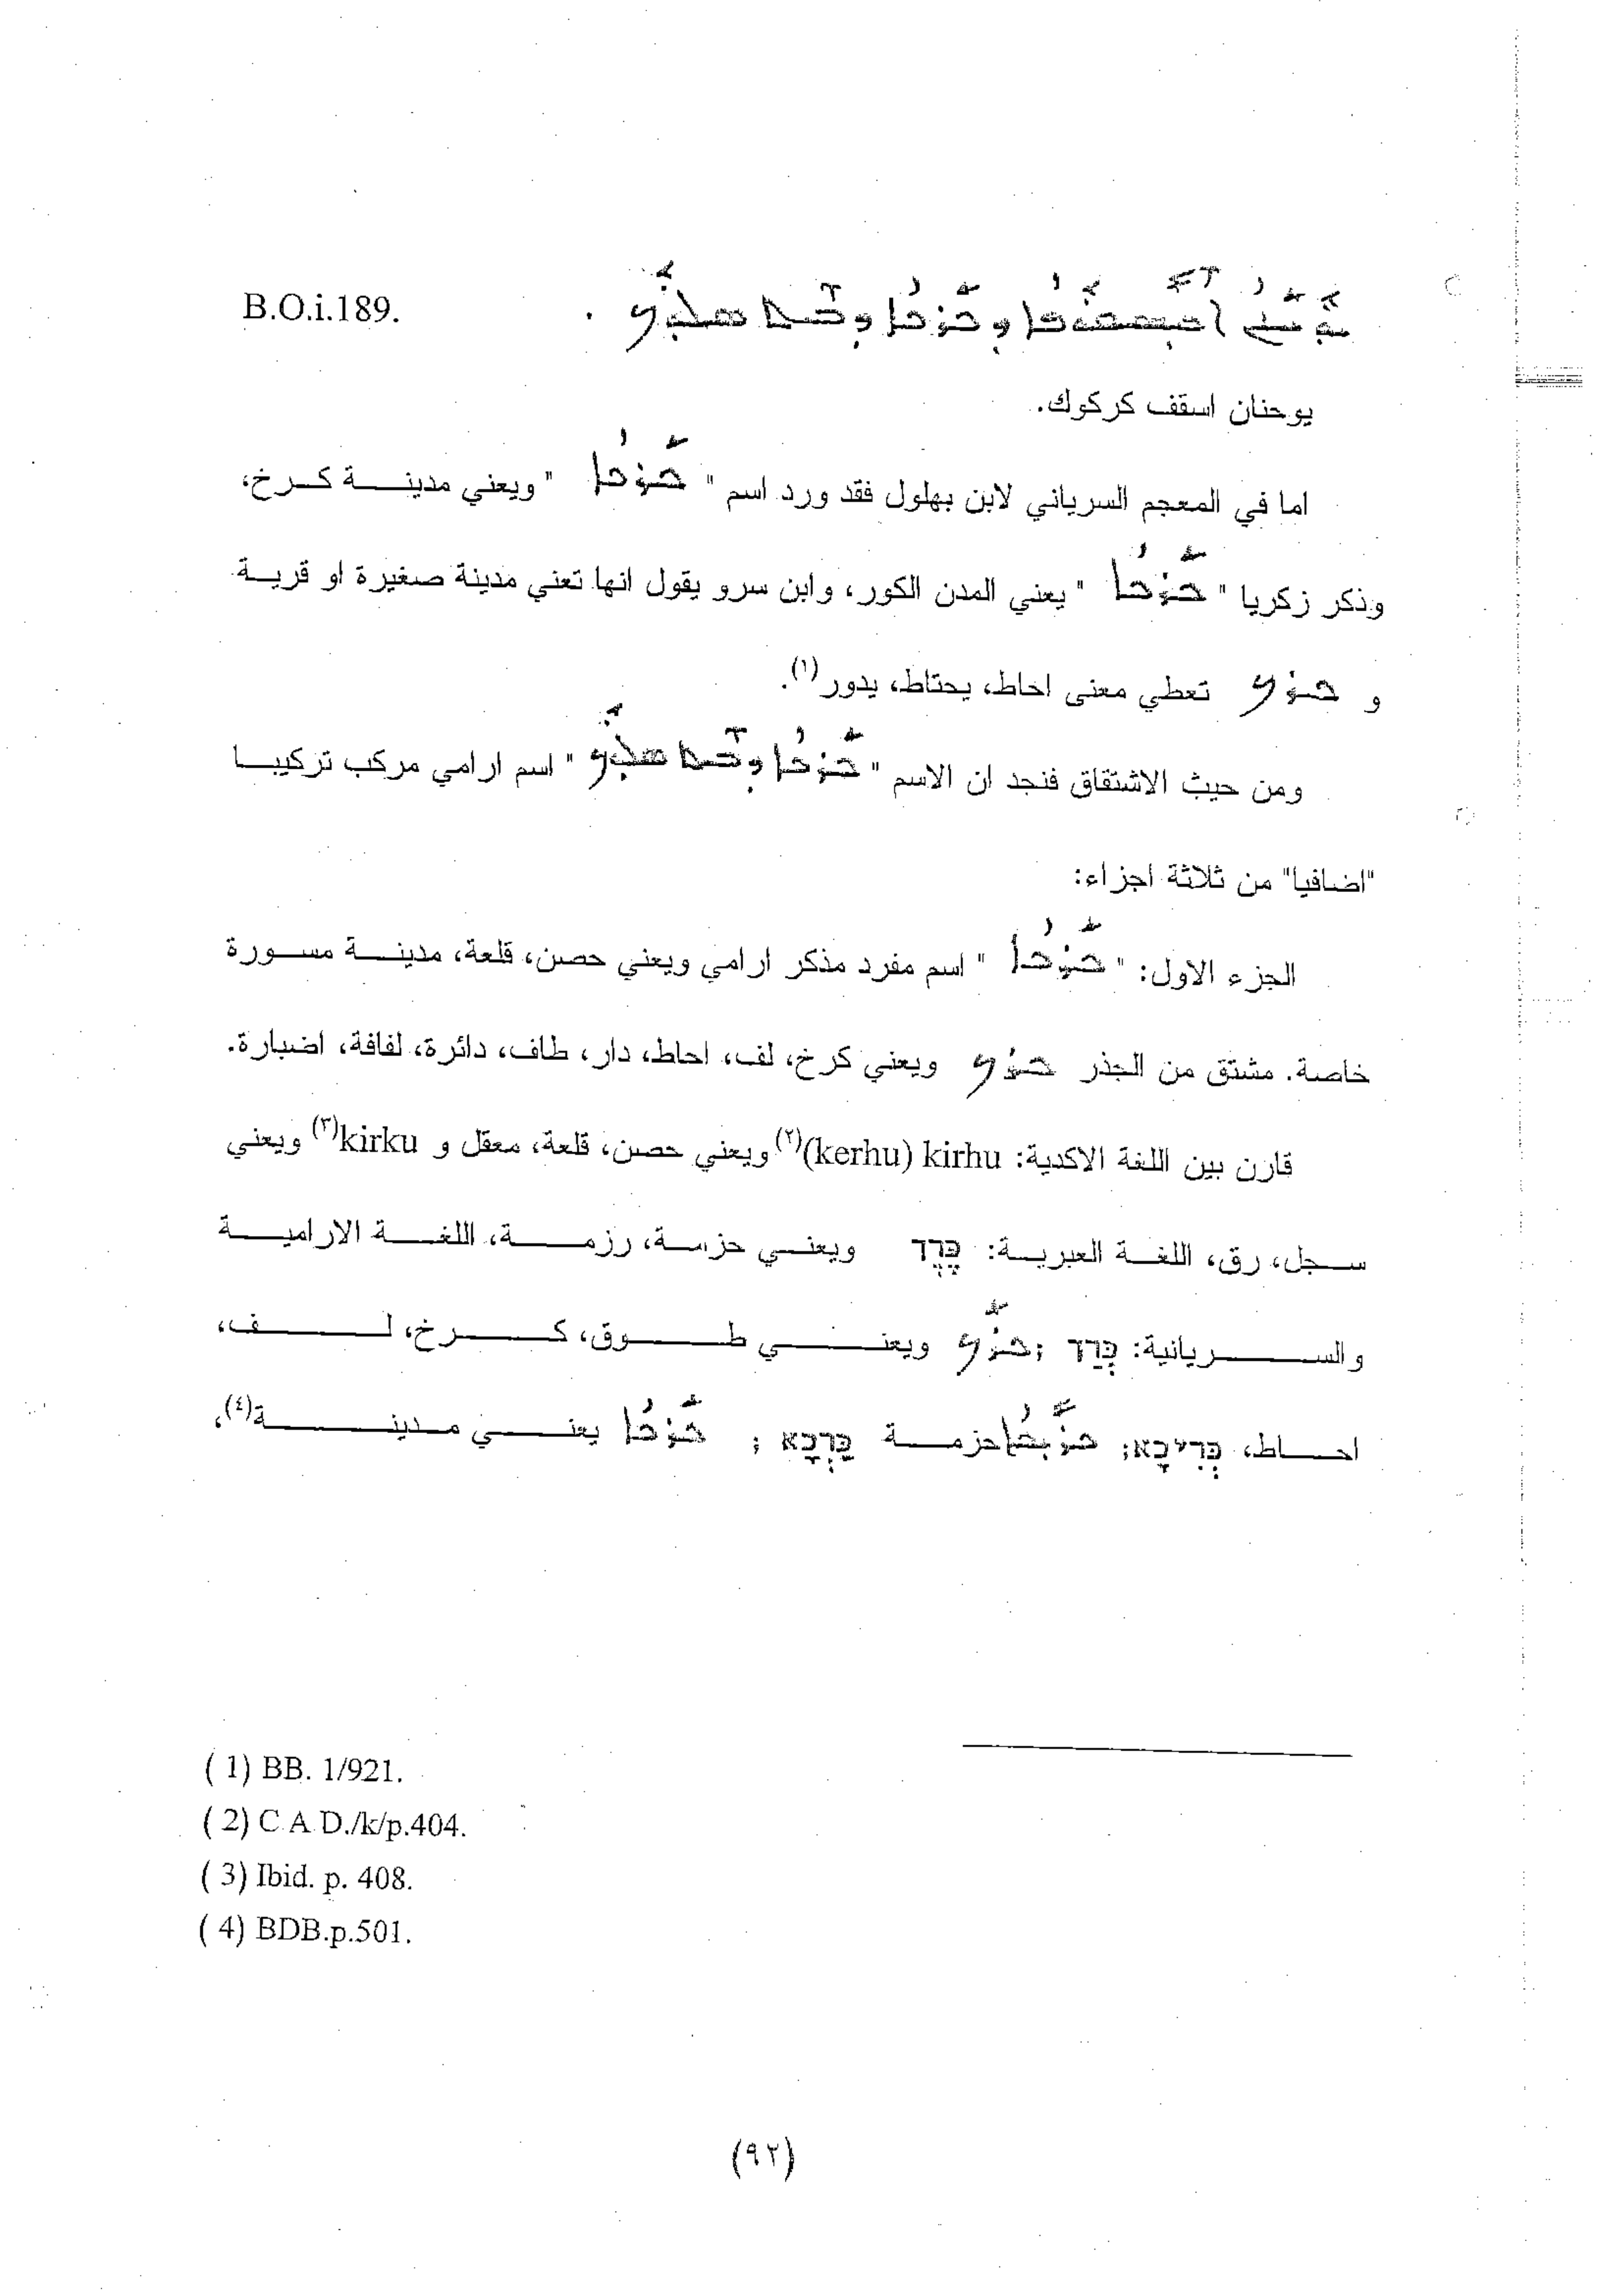 ܝܘܚܢܢ ܐܦܝܣܩܘܦܐ ܕܟܪܟܐ ܕܒܝܬ ܣܠܘܟ . B.O.i.189.
يوحنان اسقف كركوك.
اما في المعجم السرياني لابن بهلول فقد ورد اسم " ܟܪܟܐ " ويعني مدينة كرخ،
وذكر زكريا " ܟܪܟܐ " يعني المدن الكور، وابن سرو يقول انها تعني مدينة صغيرة او قرية
و ܟܪܟ تعطي معنى احاط، يحتاط، يدور(١).
ومن حيث الاشتقاق فنجد ان الاسم " ܟܪܟܐ ܕܒܝܬ ܣܠܘܟ " اسم ارامي مركب تركيبا
"اضافيا" من ثلاثة اجزاء:
الجزء الاول: " ܟܪܟܐ " اسم مفرد مذكر ارامي ويعني حصن، قلعة، مدينة مسورة
خاصة. مشتق من الجذر ܟܪܟ ويعني كرخ، لف، احاط، دار، طاف، دائرة، لفافة، اضبارة.
قارن بين اللغة الاكدية: kirhu (kerhu)(٢) ويعني حصن، قلعة، معقل و kirku(٣) ويعني
سجل، رق، اللغة العبرية: כרך ويعني حزمة، رزمة، اللغة الارامية
والسريانية: כרך ; ܟܪܟ ويعني طوق، كرخ، لف،
احاط، כריכא; ܟܪܝܟܐ حزمة כרכא ; ܟܪܟܐ يعني مدينة(٤)،
( 1) BB. 1/921.
( 2) C.A.D./k/p.404.
( 3) Ibid. p. 408.
( 4) BDB.p.501.
(٩٢)